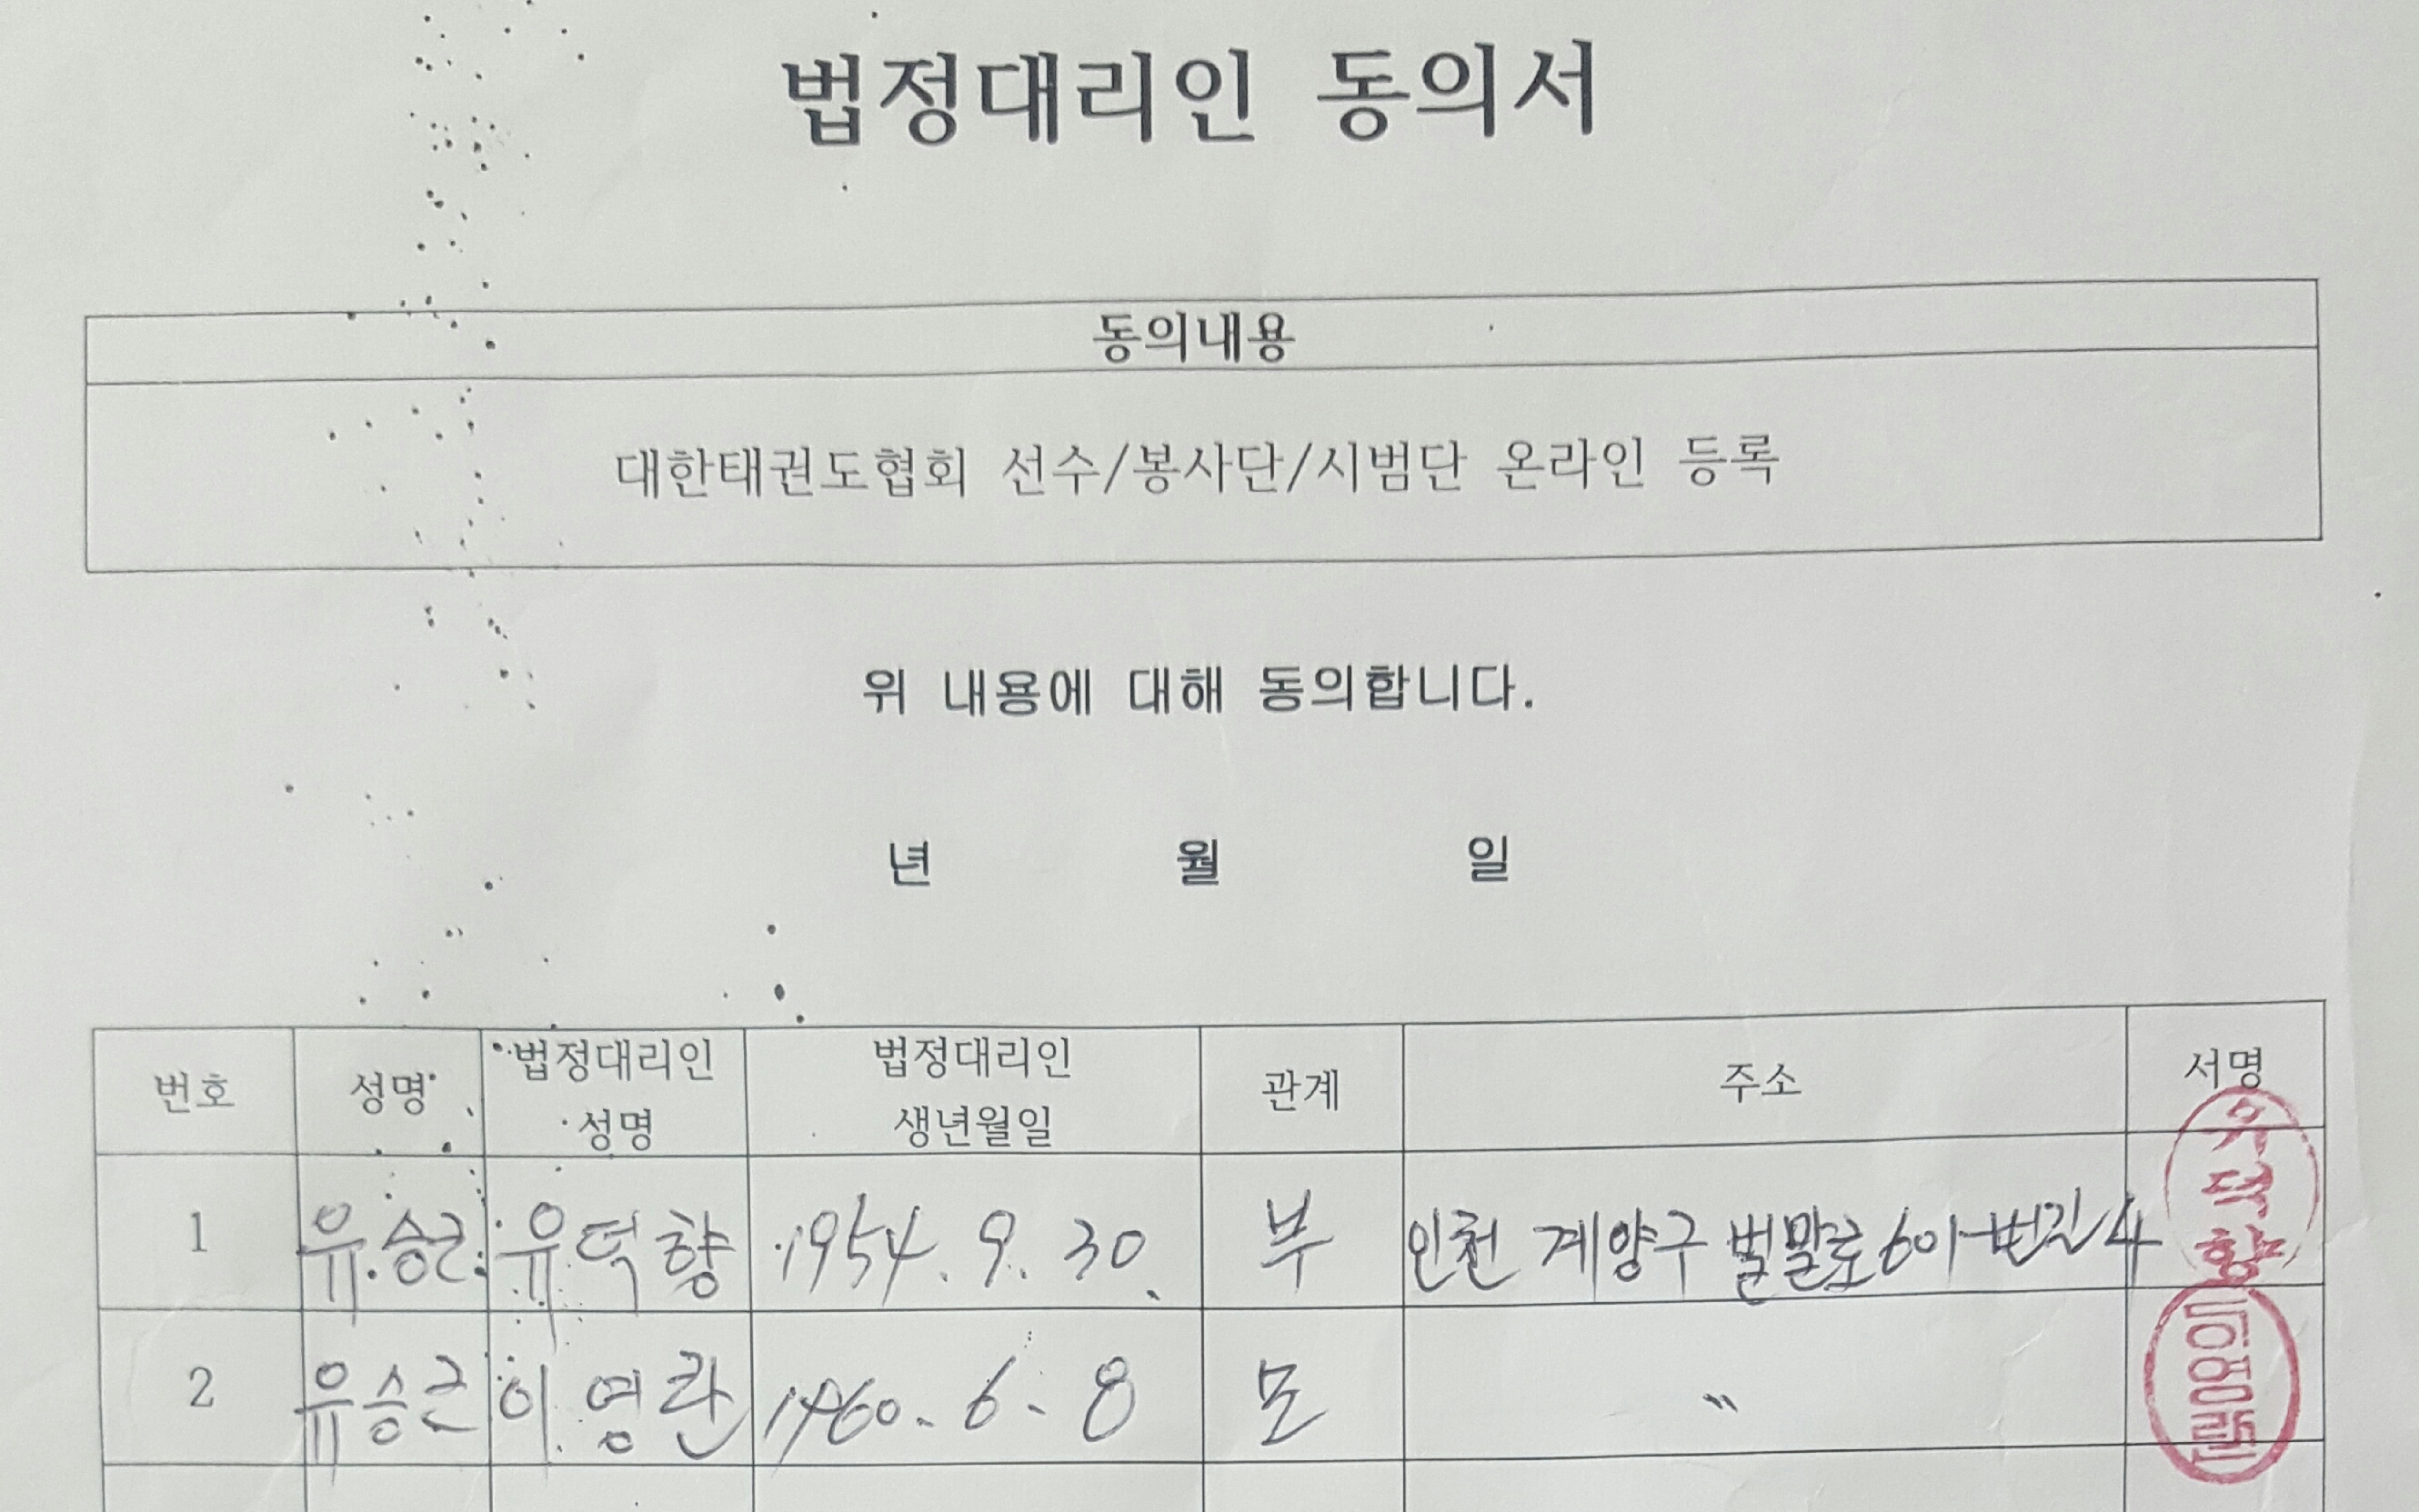 법정대리인 동의서
동의내용
대한태권도협회 선수/봉사단/시범단 온라인 등록
위 내용에 대해 동의합니다.
년 월 일
번호 성명 법정대리인 성명 법정대리인 생년월일 관계 주소 서명
1 유승근 유덕향 1954. 9. 30. 부 인천 계양구 벌말로601번길 4 유덕향
2 유승근 이영란 1960. 6. 8 모 〃